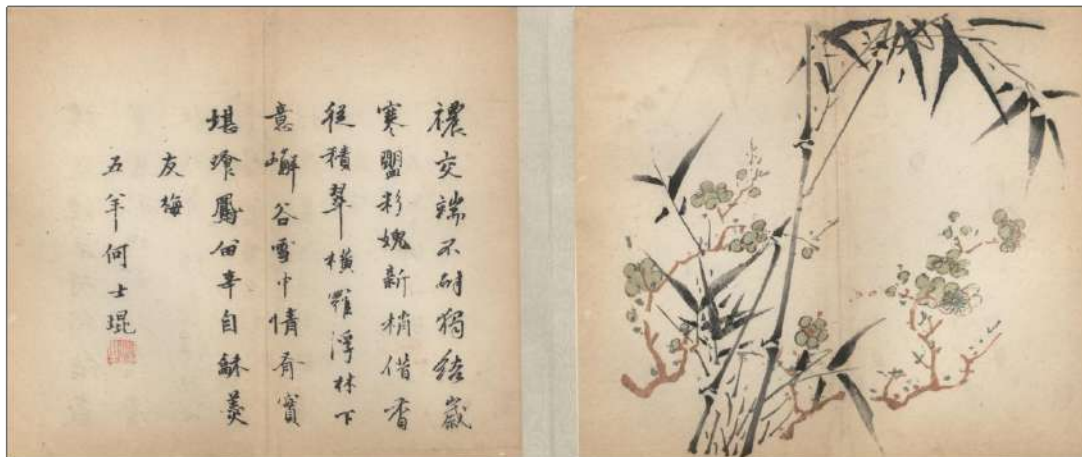 襛交端不耐獨結歲
寒盟粉媿新梢借香
從積翠橫羅浮林下
意嶰谷雪中情有實
堪飡鳳留辛自龢羹
友梅
五羊何士琨